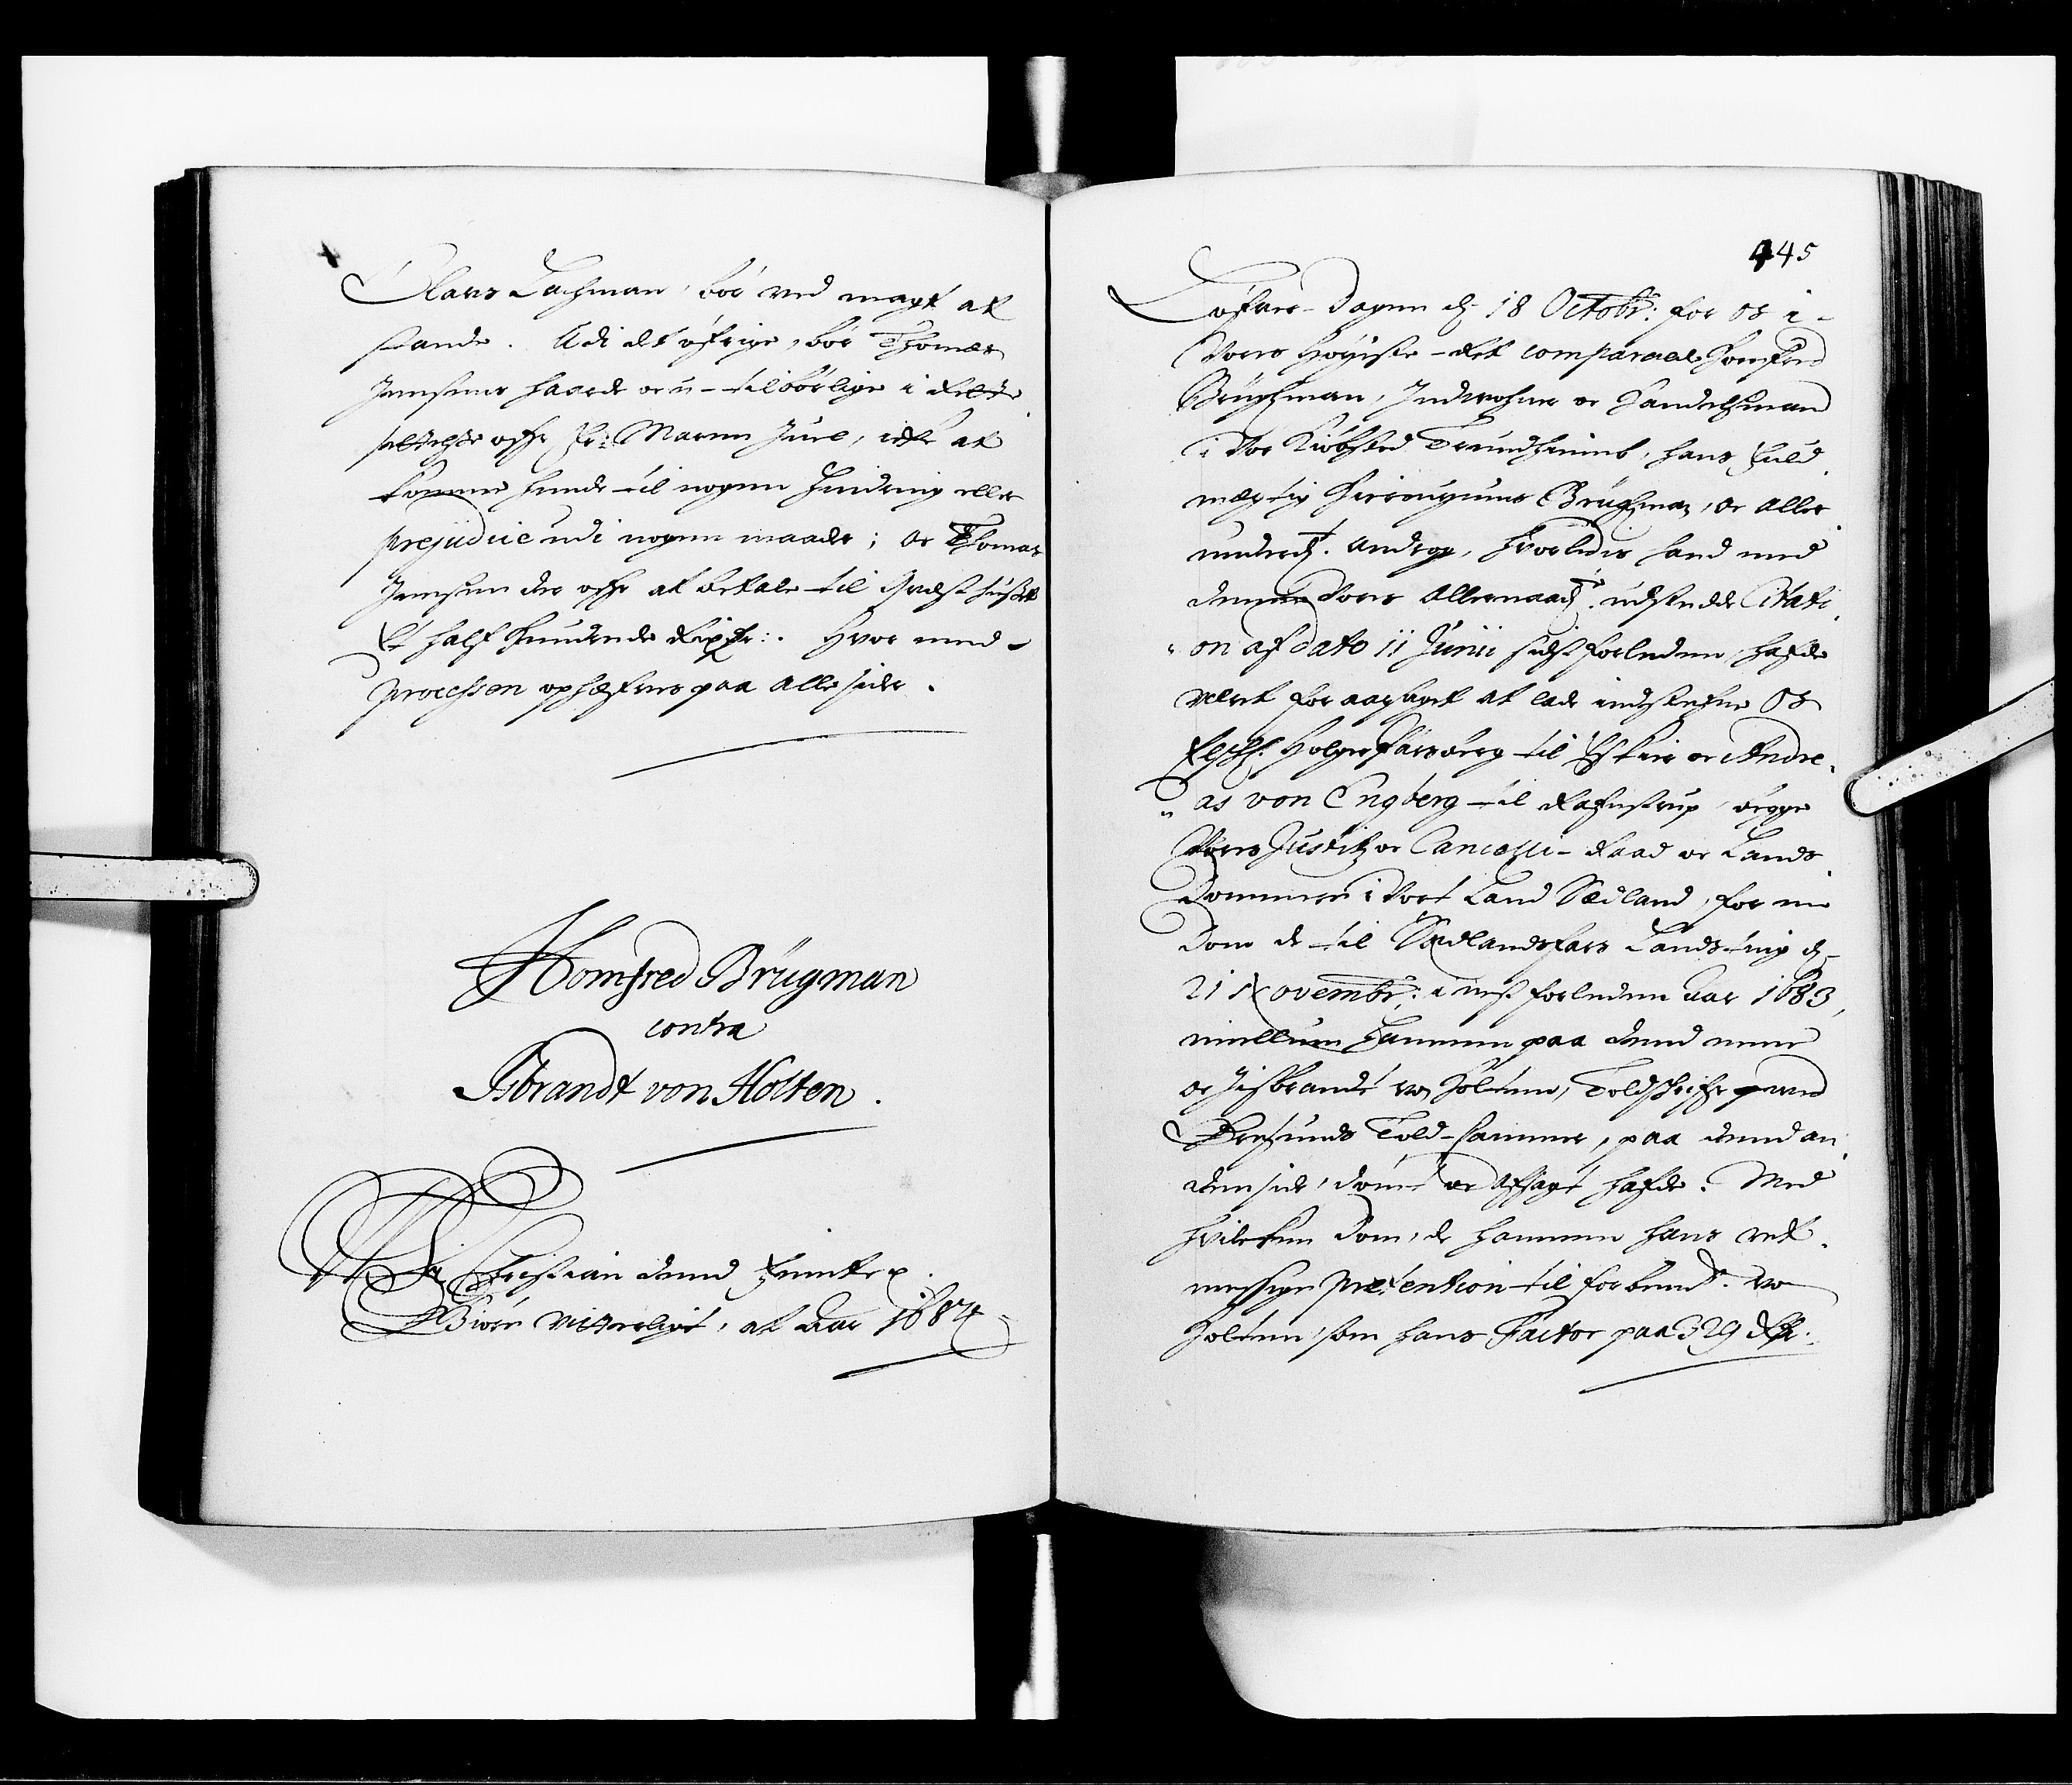 Claus Lachman, bör ved magt at
stande. Udi det öfrige, bör Thomas
Jensens haarde oc u-tilbörlige i Rette
settelse ofver Fr: Maren Juel, icke at
komme hende til nogen hindring eller
prejudice udi nogen maade; oc Thomas
Jensen der ofver at betale til Quæsthuset
et half hundrede Rixdr: Hvor med
processen ophæfves paa alle sider.
Homfred Brügman
contra
Isbrandt von Holten.
Wi Christian dend Femte p.
Giöre vitterligt, at Aar 1684
445
Löfver-dagen d. 18 Octobr: for os i
Vores Höyeste-Ret comparerede Homfred
Brügman, Indvohner oc Handelsmand
i Vor Kiöbsted Trundhiemb, hans Fuld
mægtig Hieronymus Brügman, oc aller
underd.t androg, hvorledis hand med
denne Vores Allernaad.te udstedde Citati
on af dato 11 Junii sidst forleden, hafde
veret foraarsaget at lade indstefne Os
Elsk. Holger Parsberg til Eskier oc Andre
as von Engberg til Rafnstrup, begge
Vores Justitz oc Cancelli-Raad oc Lands
dommere i Vort Land Sædland, for en
Dom de til Sædlandsfars Landsting d.
21 Novembr: i nest forleden Aar 1683,
mellum hannem paa dend eene
oc Isbrandt von Holten, Toldskrifver ved
Öresunds Told-Cammer, paa dend an
den side, dömt oc afsagt hafde. Med
hvilcken Dom, de hannem hans ret
messige prætention til forbemd.te von
Holten, som hans Factor paa 329 Rdr.